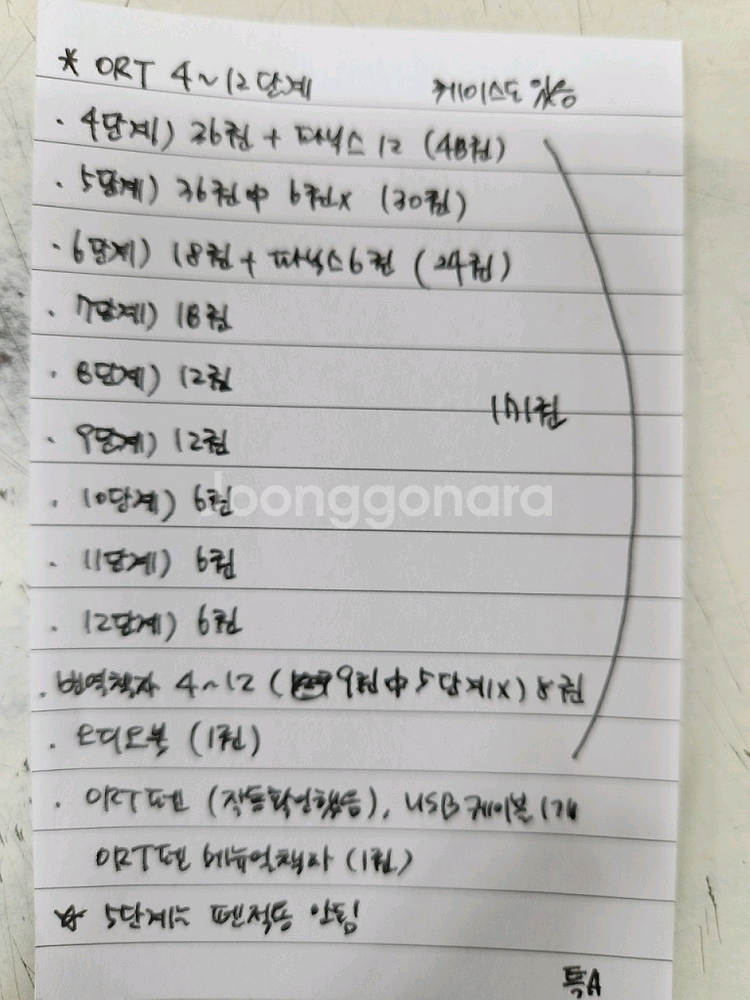 * ORT 4~12단계 케이스도 있음
· 4단계) 36권 + 파닉스 12 (48권)
· 5단계) 36권中 6권x (30권)
· 6단계) 18권 + 파닉스6권 (24권)
· 7단계) 18권
· 8단계) 12권
171권
· 9단계) 12권
Joonggonara
· 10단계) 6권
· 11단계) 6권
· 12단계) 6권
· 번역책자 4~12 (9권中 5단계x) 8권
· 오디오북 (1권)
· ORT펜 (작동확인했음), USB케이블 1개
ORT펜 메뉴얼책자 (1권)
☆ 5단계는 펜작동 안됨
특A